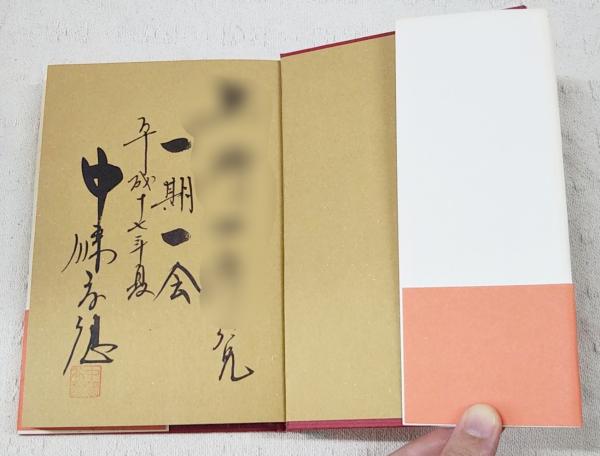 兄
一期一会
平成十七年夏
中條高德